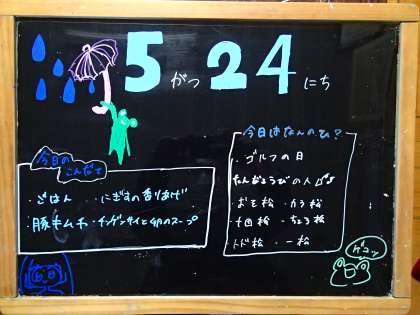 5がつ24にち
今日のこんだて
ごはん ・にぎすの香りあげ
豚キムチ・チンゲンサイと卵のスープ
今日はなんのひ?
・ゴルフの日
たんじょうびの人
・おそ松 ・カラ松
・十四松 ・ちょろ松
・トド松 ・一松
ゲコッ